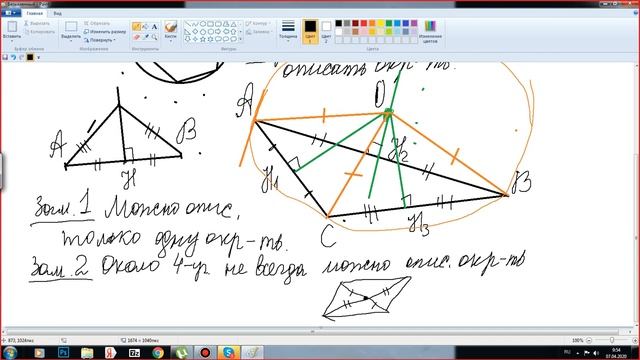 Безымянный - Paint
Файл Главная Вид
Вставить
Вырезать
Копировать
Буфер обмена
Выделить
Обрезать
Изменить размер
Повернуть
Изображение
Инструменты
Кисти
Контур
Заливка
Фигуры
Толщина
Цвет 1
Цвет 2
Изменение цветов
Цвета
описать окр-ть.
A D
A B H₂
H H₁ B
C H₃
Зам. 1 Можно опис.
только одну окр-ть.
Зам. 2 Около 4-уг. не всегда можно опис. окр-ть
873, 1024пкс
1674 × 1040пкс
100%
RU
9:54
07.04.2020